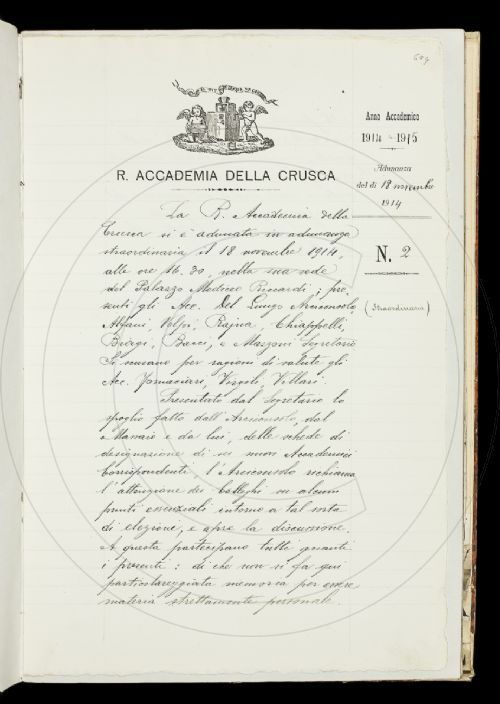 609
R. ACCADEMIA DELLA CRUSCA
Anno Accademico
1914 - 1915
Adunanza
del dì 18 novembre
1914
N. 2
(Straordinaria)
La R. Accademia della
Crusca si è adunata in adunanza
straordinaria il 18 novembre 1914,
alle ore 16.30, nella sua sede
del Palazzo Mediceo Riccardi; pre-
senti gli Acc. Del Lungo Arciconsolo,
Alfani, Volpi, Rajna, Chiappelli,
Biagi, Bacci, e Mazzoni Segretario
Si scusano per ragioni di salute gli
Acc. Tommasini, Vitelli, Villari.
Presentato dal Segretario lo
spoglio fatto dall'Arciconsolo, dal
Massaio e da lui, delle schede di
designazione di sei nuovi Accademici
Corrispondenti, l'Arciconsolo richiama
l'attenzione dei Colleghi su alcuni
punti essenziali intorno a tal sorta
di elezione, e apre la discussione.
A questa partecipano tutti quanti
i presenti: di che non si fa qui
particolareggiata memoria per essere
materia strettamente personale.